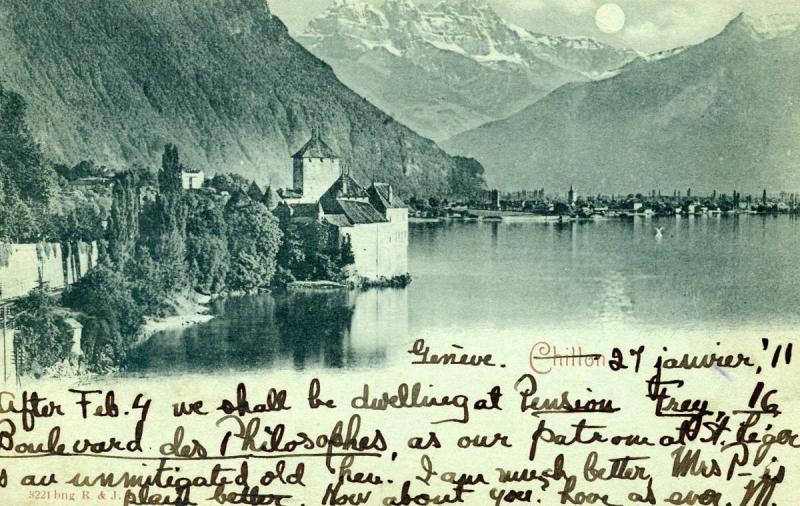 Genève. Chillon 27 janvier, '11
After Feb. 4 we shall be dwelling at Pension Frey, 16
Boulevard des Philosophes, as our patrom at St. Léger
s an unmitigated old hen. I am much better, Mrs P- is
5221 bng R. & J. plain better. How about you. Love as ever, M.